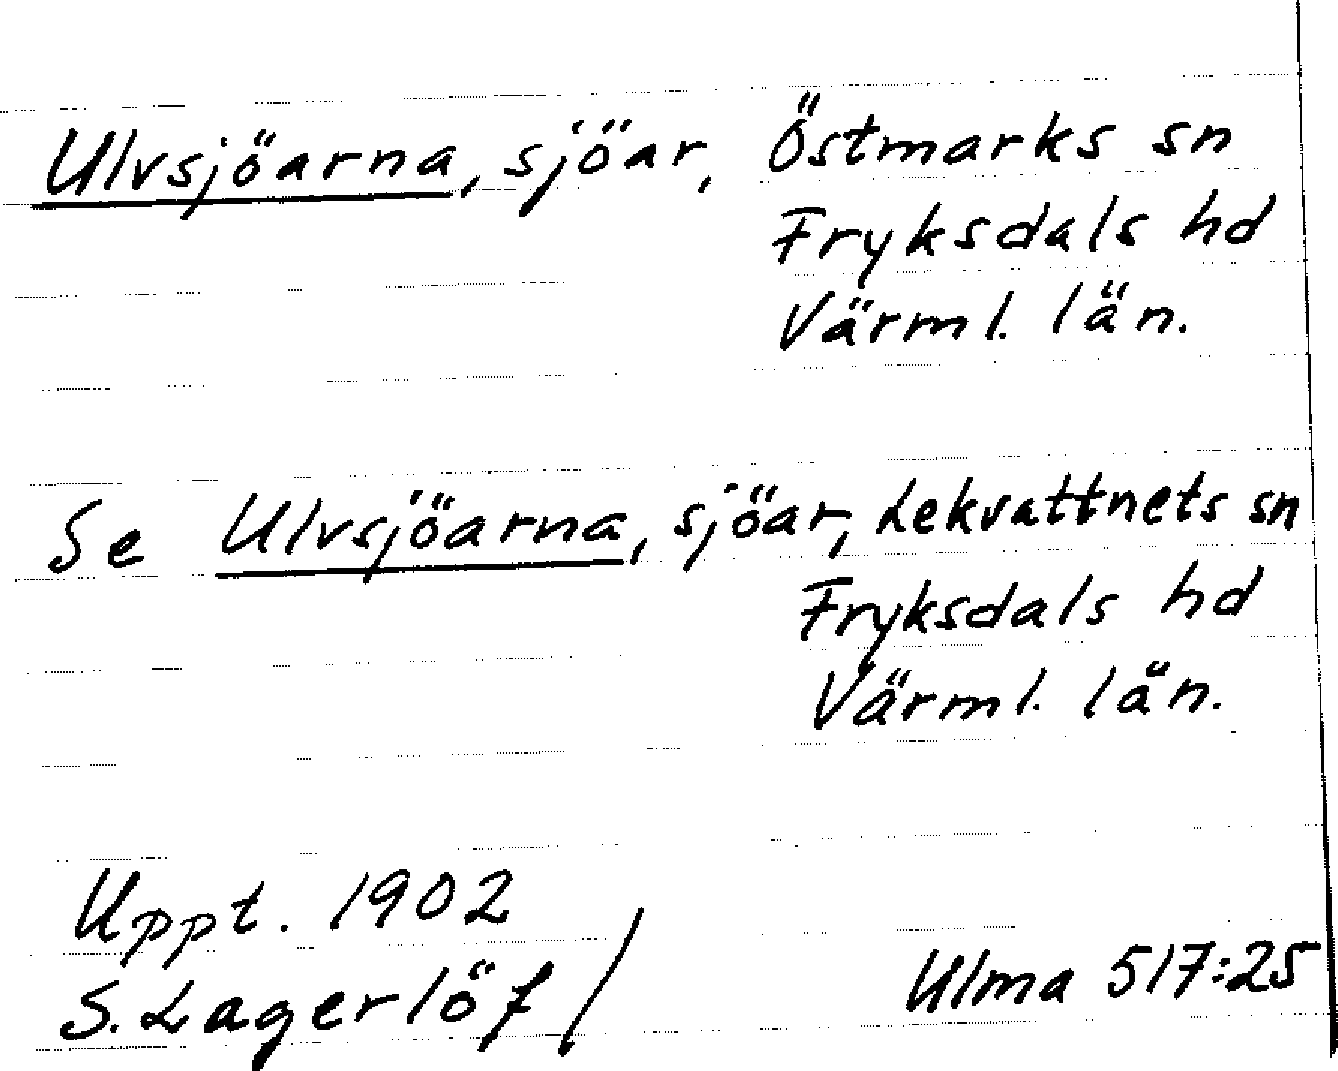 Ulvsjöarna, sjöar, Östmarks sn
Fryksdals hd
Värml. län.
Se Ulvsjöarna, sjöar, Lekvattnets sn
Fryksdals hd
Värml. län.
Uppt. 1902
S. Lagerlöf /
Ulma 517:25